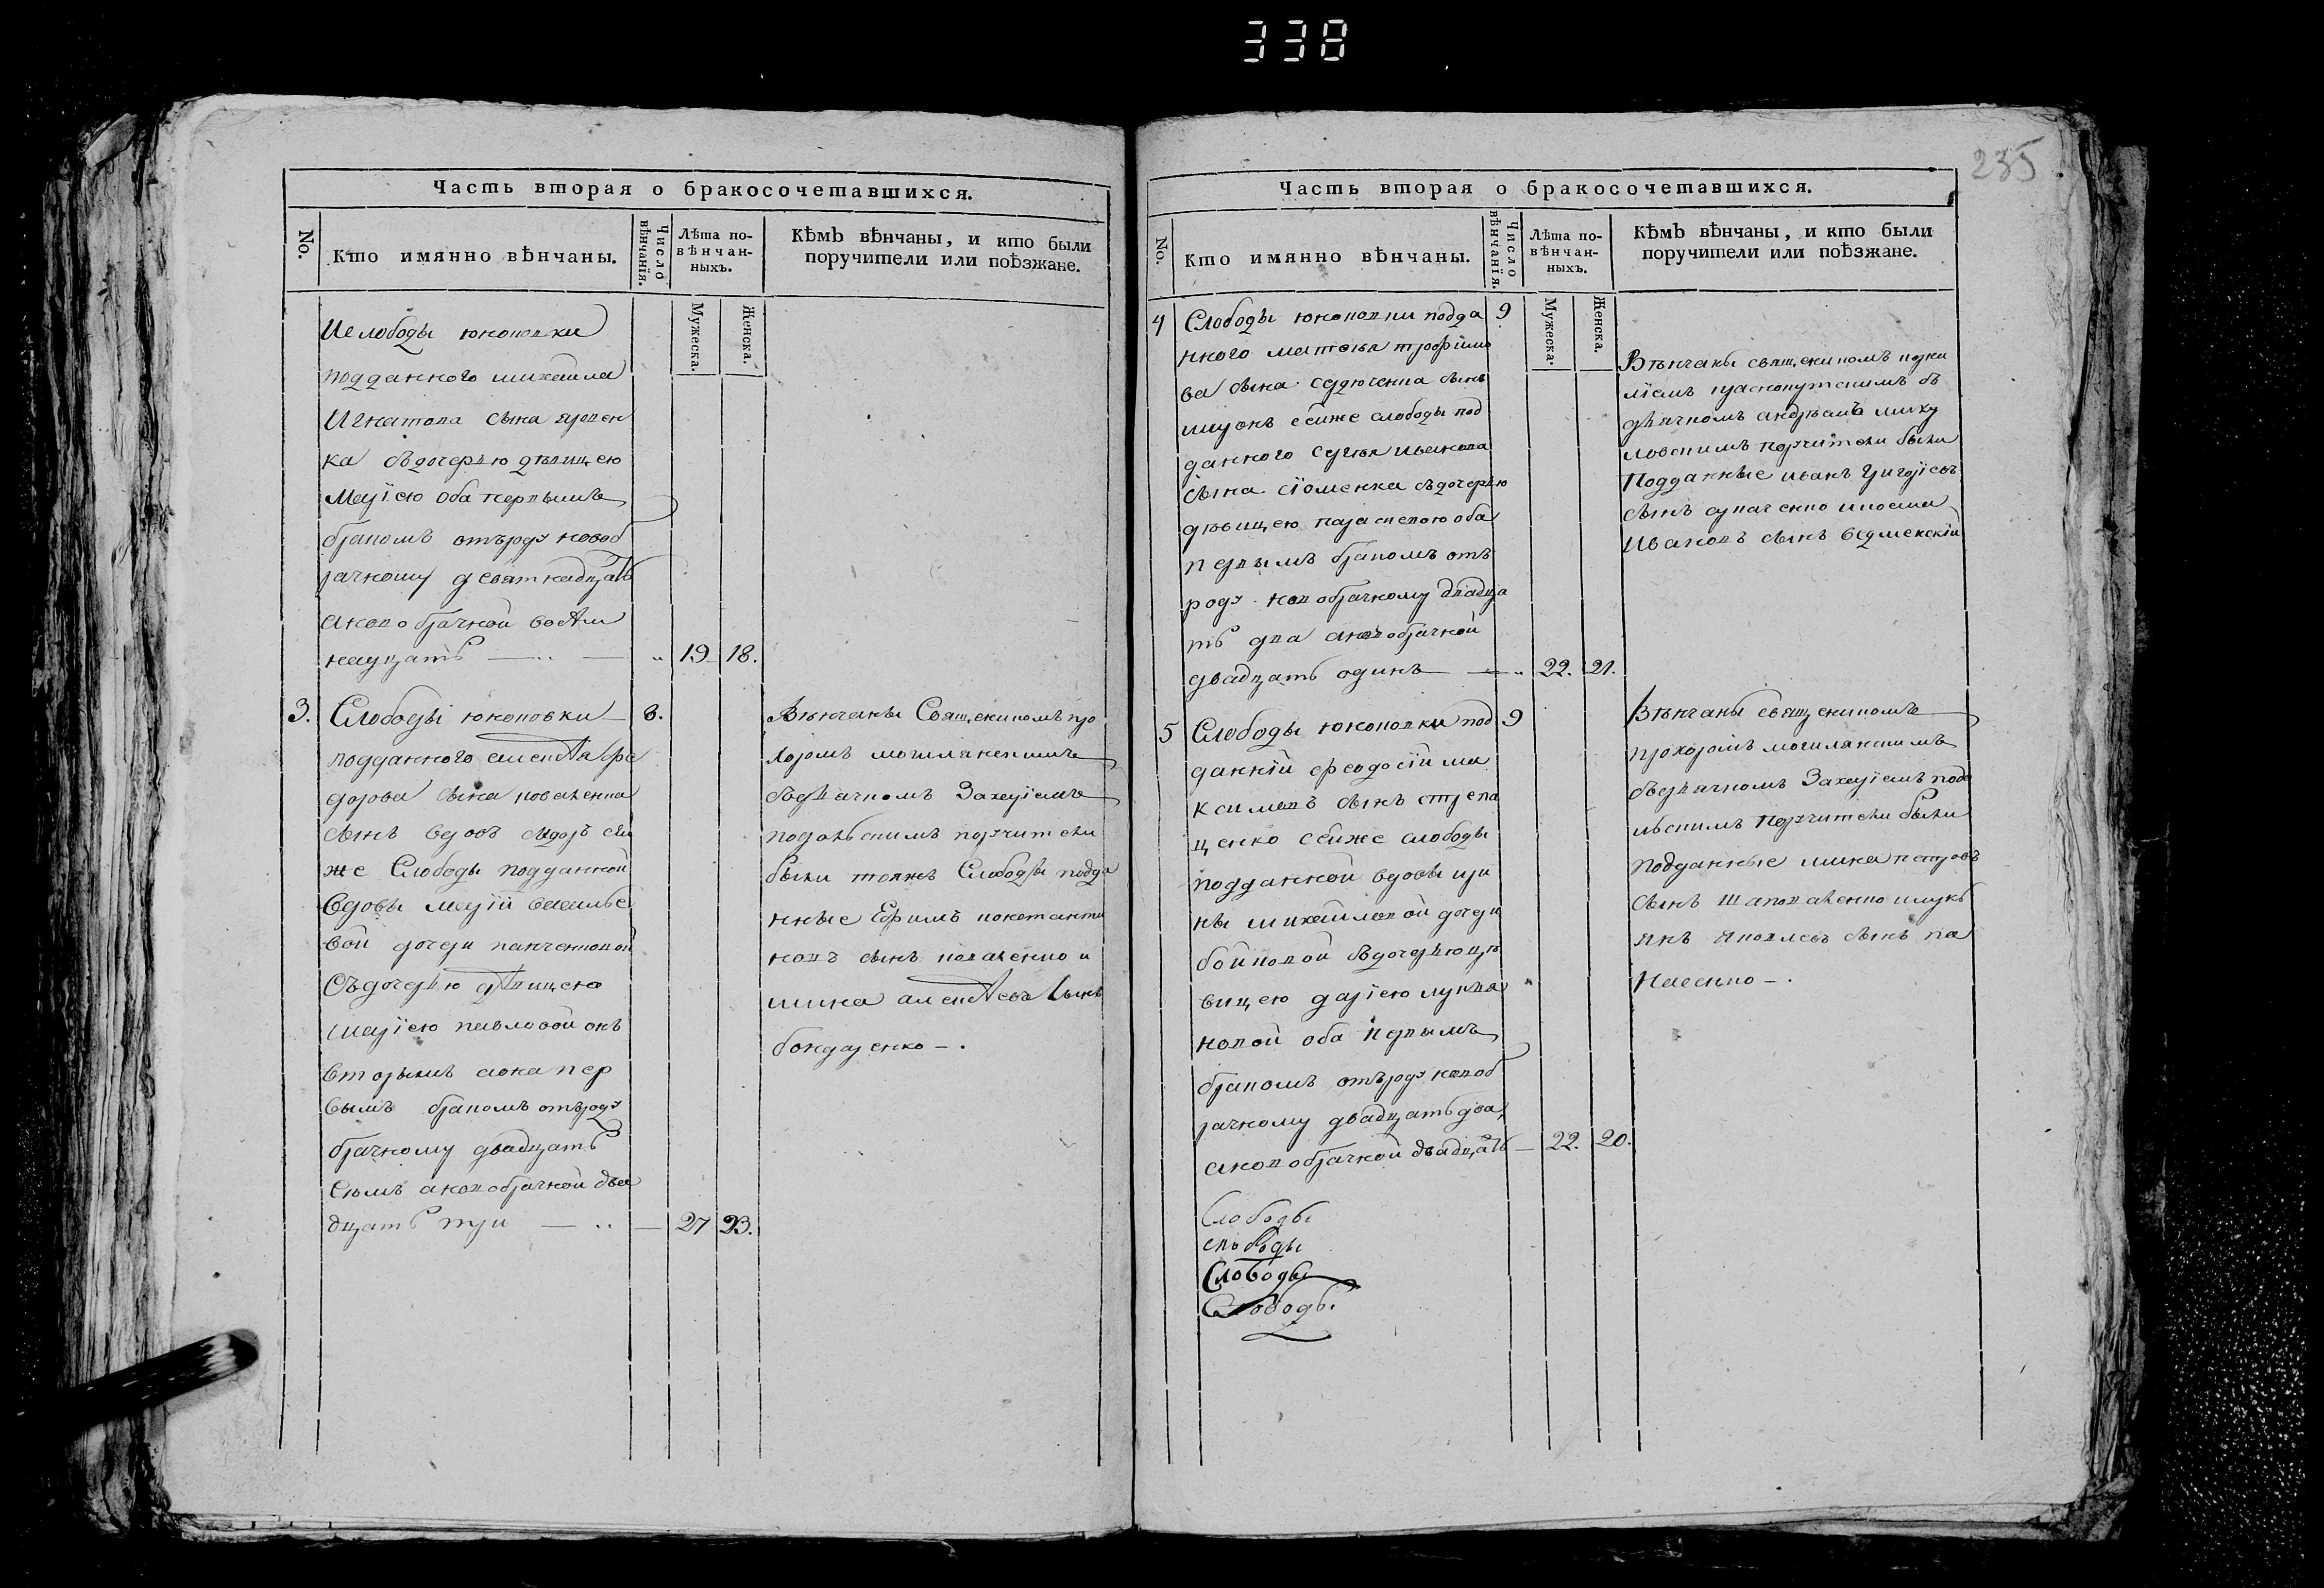 338
235
Часть вторая о бракосочетавшихся.
No.
Кто имянно вѣнчаны.
Число вѣнчанія.
Лѣта повѣнчанныхъ.
Мужеска.
Женска.
Кѣмъ вѣнчаны, и кто были
поручители или поѣзжане.
подданного михайла
Игнатова сына
ка съдочерью дѣвицею
Маріею оба первымъ
бракомъ отъроду новоб
рачному девятнадцать
ановобрачной восѣм
надцать 19 18.
3. Слободы юноковки 8.
подданного алексѣя фе
дорова сына коваленка
сынъ
же Слободы подданной
Вдовы маріи василье
вой дочери панченковой
Съдочерью дѣвицею
Маріею павловой онъ
вторымъ аона пер
вымъ бракомъ отъроду
брачному двадцать
Семъ ановобрачной два
дцать три 27 23.
Вѣнчаны Священикомъ про
хоромъ могилянскимъ
съдячкомъ Захаріемъ
подольскимъ поручители
были тояжъ Слободы подда
нные Ефимъ константи
новъ сынъ коваленко и
мина алексѣевъ сынъ
бондаренко
Часть вторая о бракосочетавшихся.
No.
Кто имянно вѣнчаны.
Число вѣнчанія.
Лѣта повѣнчанныхъ.
Мужеска.
Женска.
Кѣмъ вѣнчаны, и кто были
поручители или поѣзжане.
4 Слободы подда 9
нного матвея трофимо
ва сына сынъ
сеиже слободы под
данного иванова
сына съдочерью
дѣвицею параскевою оба
первымъ бракомъ отъ
роду новобрачному двадца
ть два ановобрачной
двадцать одинъ 22. 21.
Вѣнчаны священикомъ
съ
дячкомъ андреемъ мику
ловскимъ поручители были
Подданные иванъ григоріевъ
сынъ
Ивановъ сынъ
5 Слободы под 9
данній феодосій ма
ксимовъ сынъ
ценко сеиже слободы
подданной вдовы ири
ны михайловой дочери
бойковой съдочерью дѣ
вицею даріею лукія
новой оба первымъ
бракомъ отъроду новоб
рачному двадцать два,
ановобрачной двадцать 22. 20.
Вѣнчаны священикомъ
прохоромъ могилянскимъ
съдячкомъ Захаріемъ подо
льскимъ поручители были
подданные мина петровъ
сынъ шаповаленко илукь
янъ яковлевъ сынъ па
насенко
Слободы
слободы
Слободы
Слободы